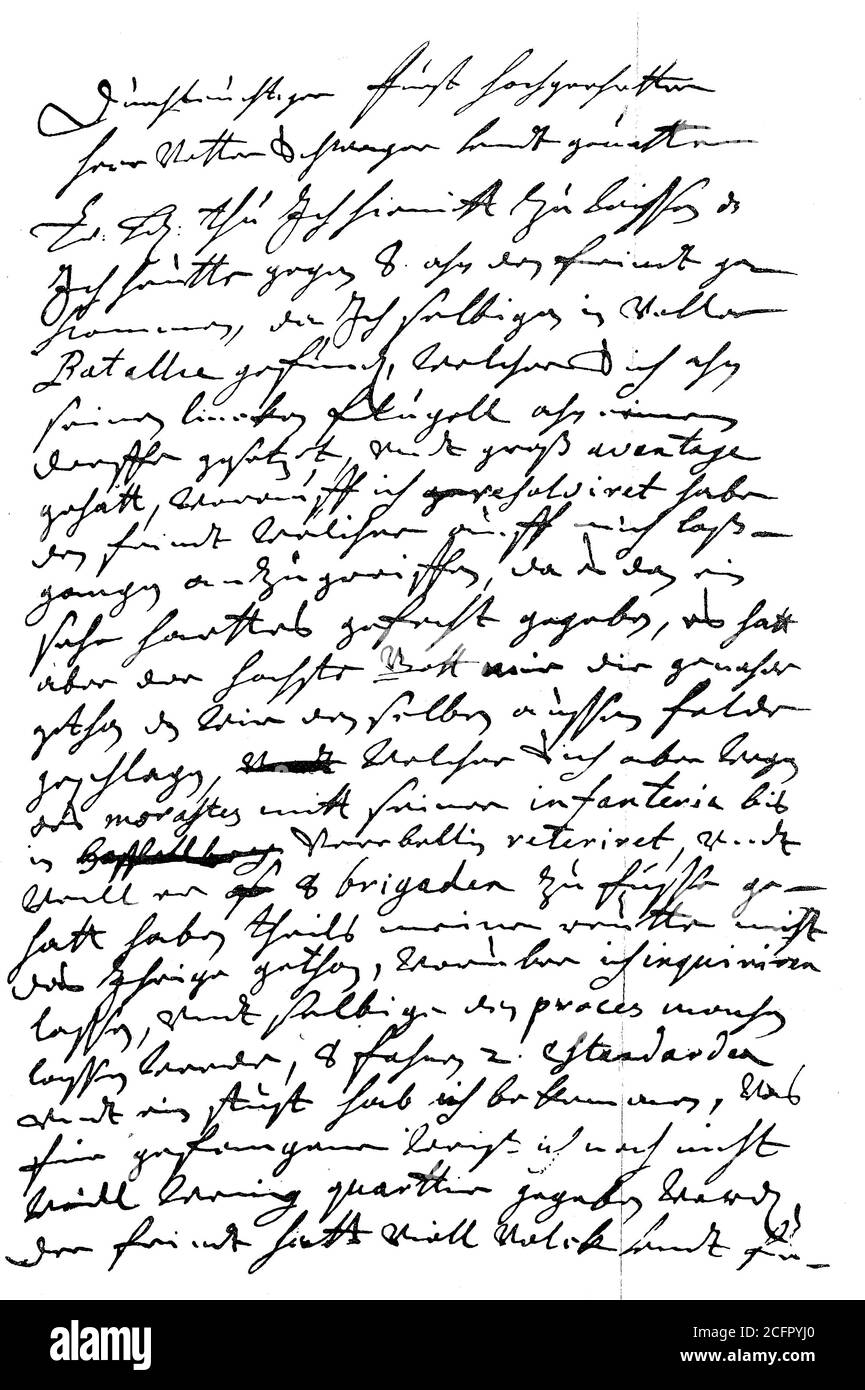 Durchleuchtiger Fürst hochgeehrter
herr Vetter Schwager undt gevatter
Ew. Ld. thu Ich hiemitt zu wissen ds
Ich heutte gegen 8. ahn den feindt ge
kommen, da Ich selbigen in Voller
Batallie gefunden, welcher Sich ahn
seinen lincken flügell ahn einem
dorffe gesetzet, undt groß avantage
gehatt, worauff ich resolviret habe
den feindt welcher auff mich loß-
gangen anzugreiffen, da es dan ein
sehr harttes gefecht gegeben, es hatt
aber der hochste Gott mir die genahde
gethan ds wir denselben aussem felde
geschlagen, undt welcher Sich aber wegen
des morastes mitt seiner infanteria bis
in Veerbellin reteriret, undt
weill er 8 brigaden zu fusse ge-
hatt haben theils meine reutter nicht
das Ihrige gethan, worüber ich inquiriren
lassen, undt selbigen den proces machen
lassen werde, 8 fahnen 2. Estandarden
undt ein stuck hab ich bekommen, was
für gefangene weis ich noch nicht
weill wenig quarttir gegeben worden
der feindt hatt viell Volck undt für-
alamy
Image ID: 2CFPYJ0
www.alamy.com